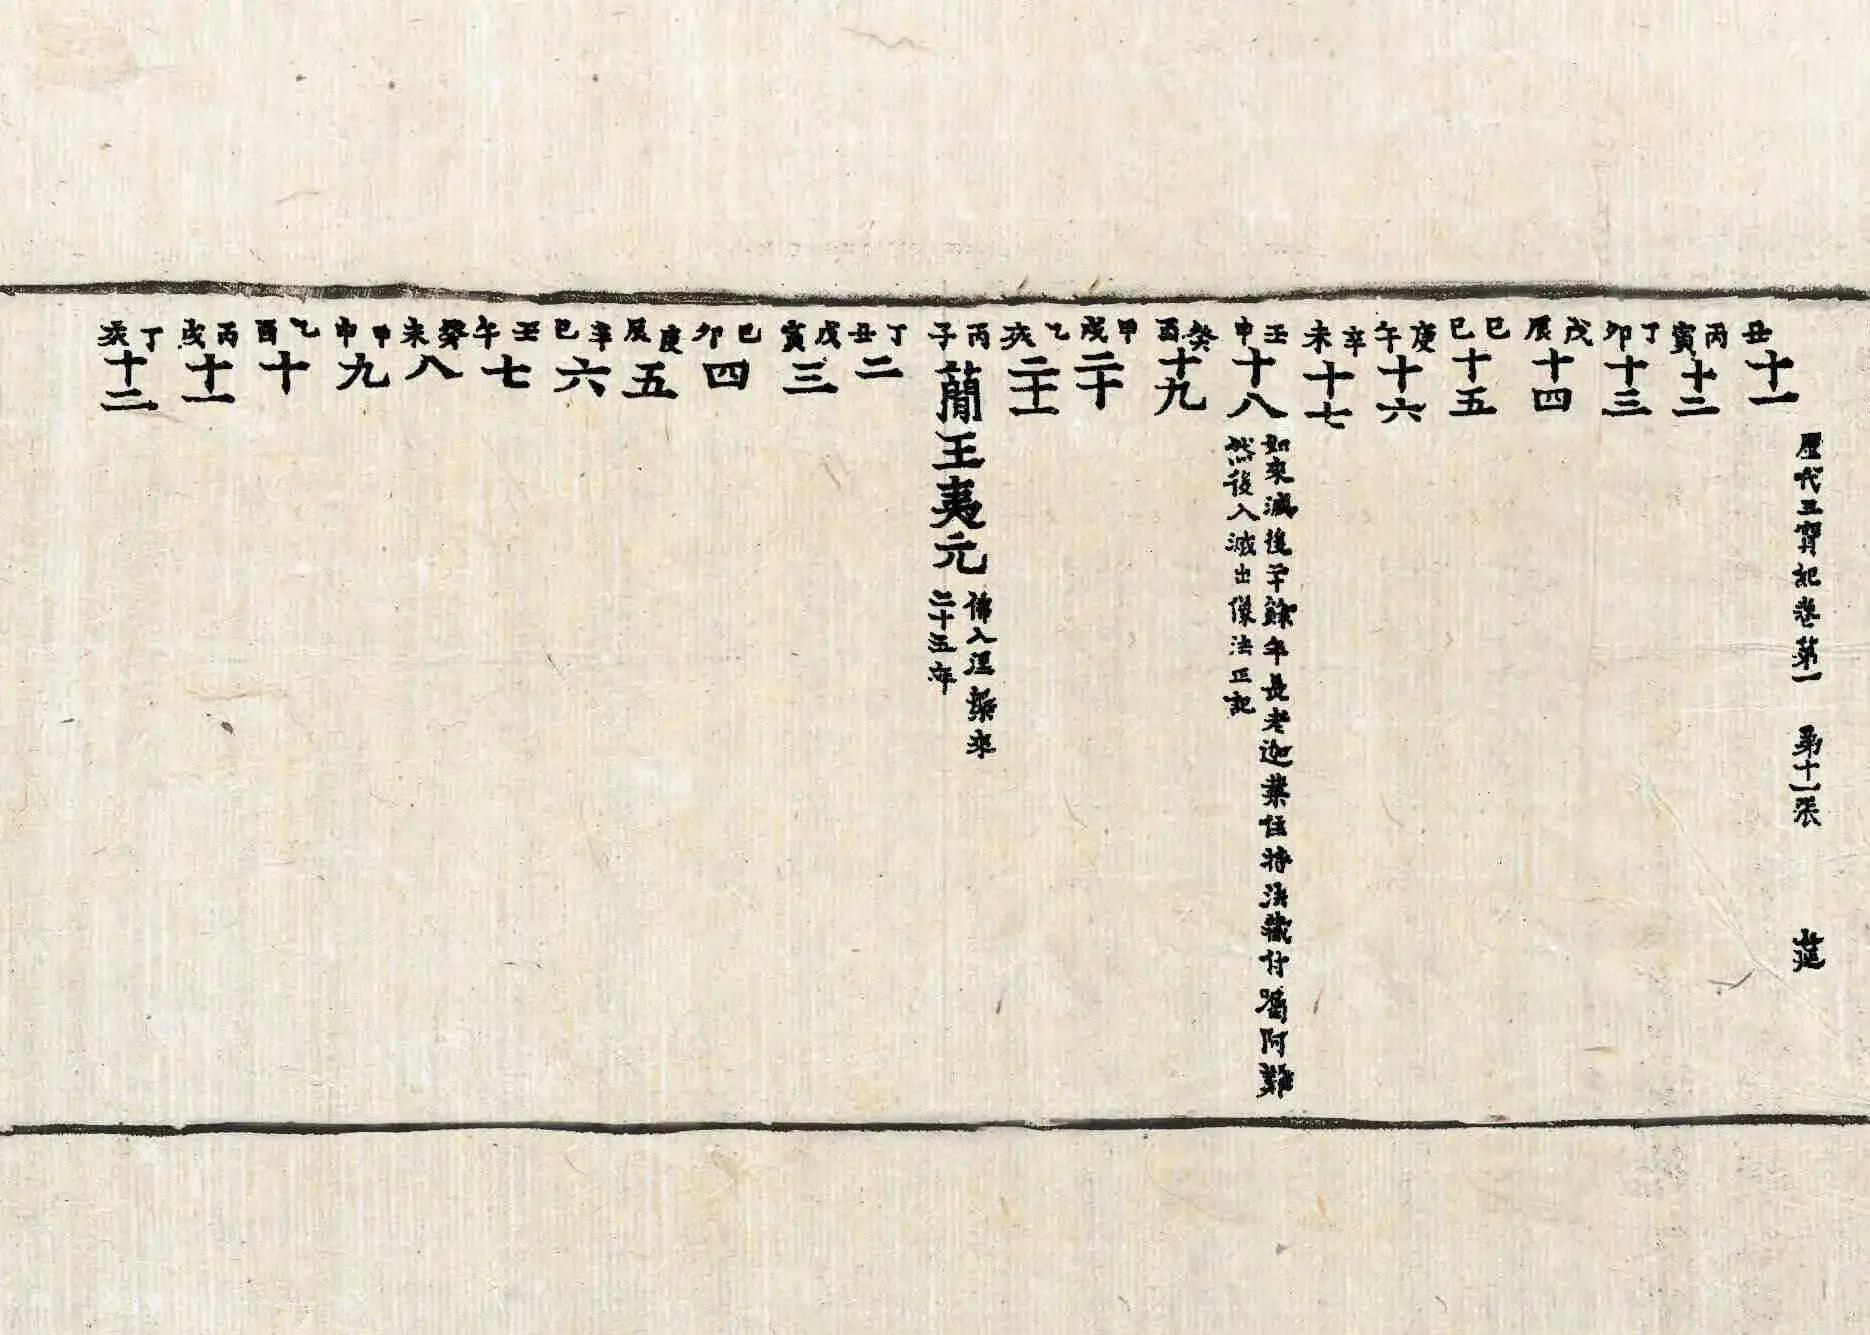 歷代三寶記卷第一 第十一張
丑十一
丙寅十二
丁卯十三
戊辰十四
己巳十五
庚午十六
辛未十七
壬申十八
如來滅後二十餘年長老迦葉住持法藏付囑阿難
然後入滅出像法正記
癸酉十九
甲戌二十
乙亥二十一
丙子簡王夷元
佛入涅槃來
二十五年
丁丑二
戊寅三
己卯四
庚辰五
辛巳六
壬午七
癸未八
甲申九
乙酉十
丙戌十一
丁亥十二